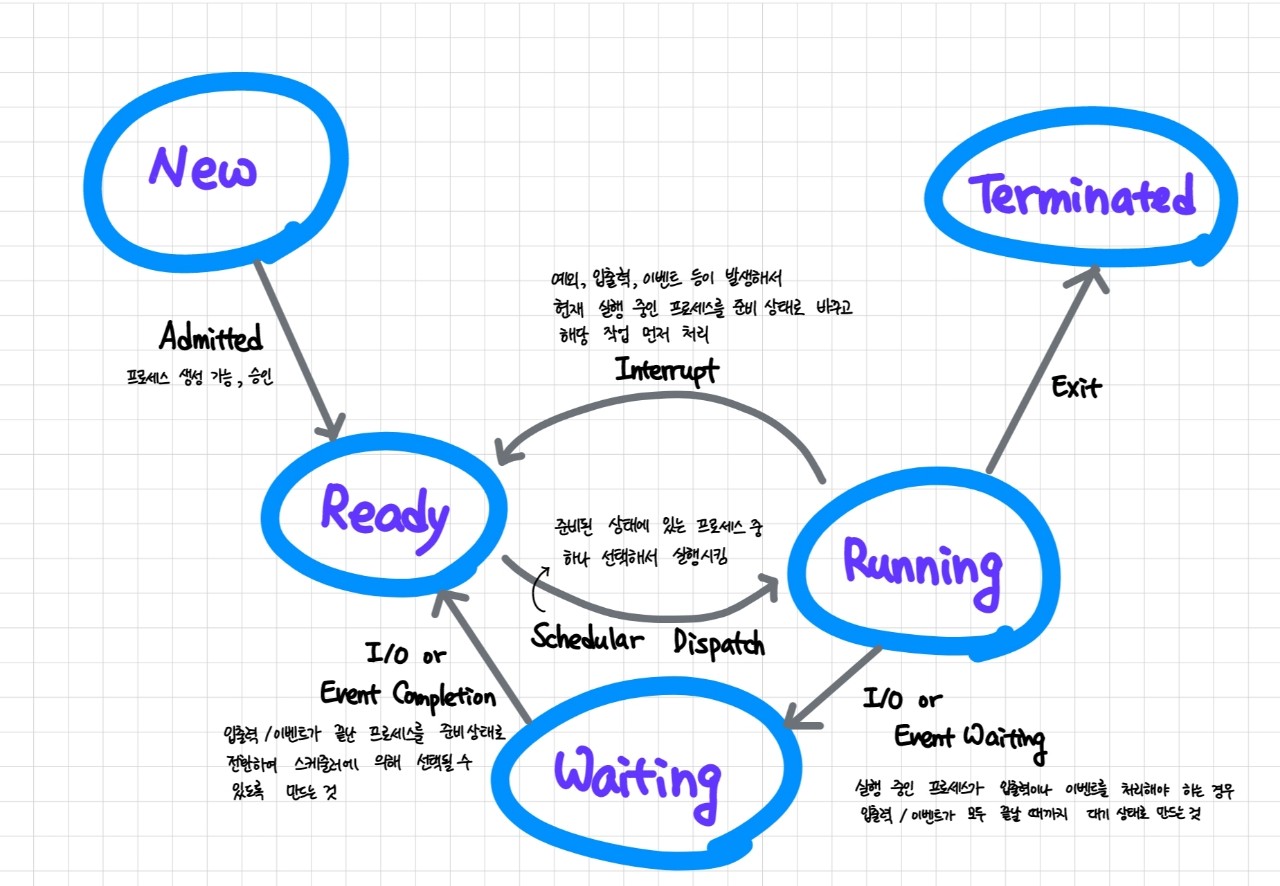 New
Terminated
예외, 입출력, 이벤트 등이 발생해서
현재 실행 중인 프로세스를 준비 상태로 바꾸고
해당 작업 먼저 처리
Interrupt
Admitted
프로세스 생성 가능, 승인
Exit
Ready
준비된 상태에 있는 프로세스 중
하나 선택해서 실행시킴
Running
Schedular Dispatch
I/O or
Event Completion
입출력/이벤트가 끝난 프로세스를 준비상태로
전환하여 스케줄러에 의해 선택될 수
있도록 만드는 것
Waiting
I/O or
Event Waiting
실행 중인 프로세스가 입출력이나 이벤트를 처리해야 하는 경우
입출력/이벤트가 모두 끝날 때까지 대기 상태로 만드는 것